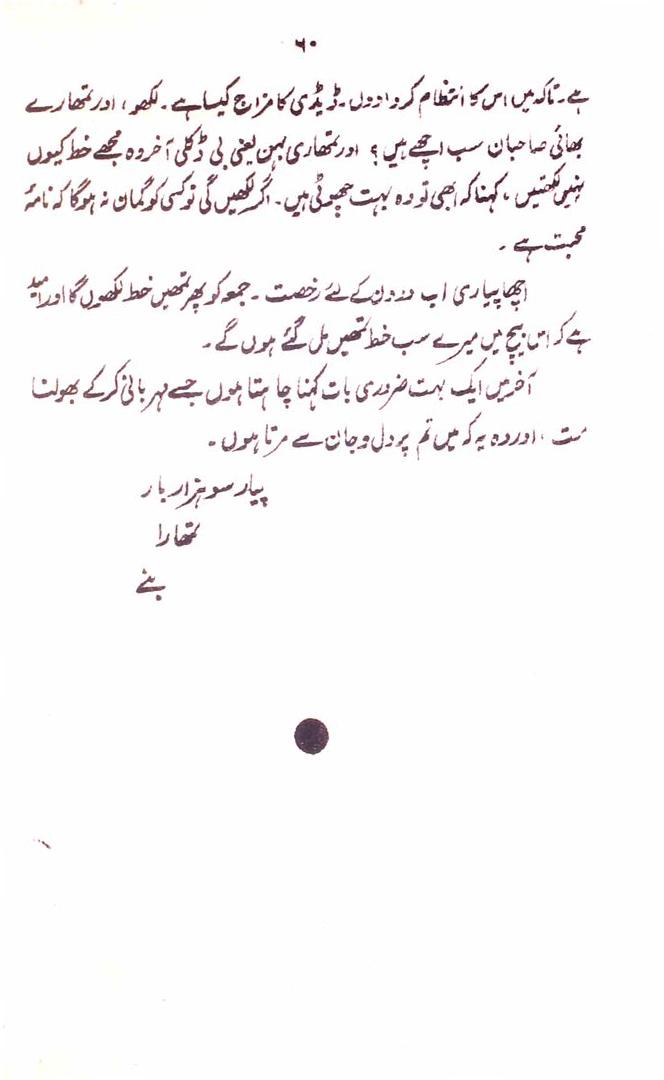 ۶۰
ہے۔ تاکہ میں اس کا انتظام کروا دوں۔ ڈیڈی کا مزاج کیسا ہے۔ لکھو، اور تمھارے
بھائی صاحبان سب اچھے ہیں؟ اور تمھاری بہن یعنی بی ڈکلی آخر وہ مجھے خط کیوں
نہیں لکھتیں، کہنا کہ ابھی تو وہ بہت چھوٹی ہیں۔ اگر لکھیں گی تو کسی کو گمان نہ ہوگا کہ نامۂ
محبت ہے۔
اچھا پیاری اب دو دن کے لئے رخصت۔ جمعہ کو پھر تمھیں خط لکھوں گا اور امید
ہے کہ اس بیچ میں میرے سب خط تمھیں مل گئے ہوں گے۔
آخر میں ایک بہت ضروری بات کہنا چاہتا ہوں جسے مہربانی کرکے بھولنا
مت، اور وہ یہ کہ میں تم پر دل و جان سے مرتا ہوں۔
پیار سو ہزار بار
تمھارا
بنے